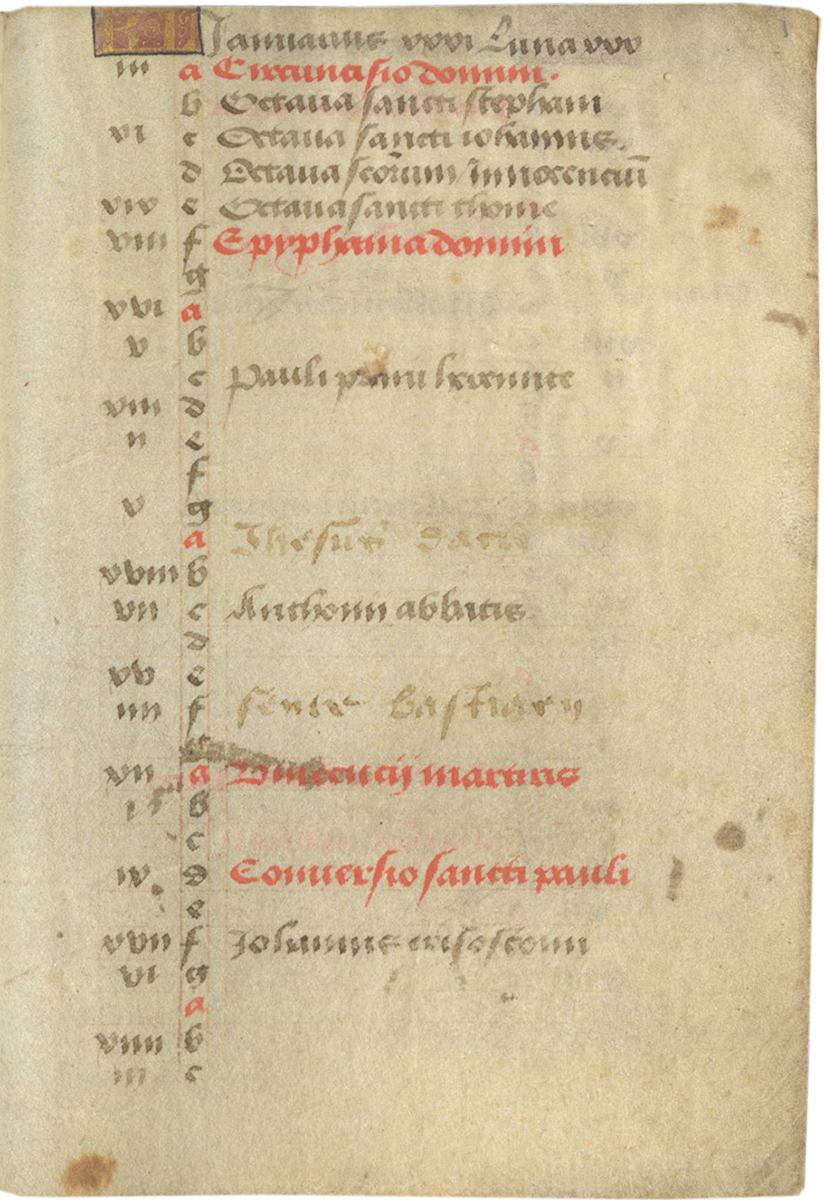 KL Januarius xxxi Luna xxx
iii a Circuncisio domini.
b Octaua sancti stephani
xi c Octaua sancti iohannis.
d Octaua scorum Innocenciū
xix e Octaua sancti thome
viii f Epyphania domini
g
xvi a
b
v b
c Pauli primi heremite
xiii d
ii e
f
x g
a
xviii b
vii c Anthonii abbatis
d
xv e
iiii f
g
xii a Vincencii martiris
i b
c
ix d Conuersio sancti pauli
e
xvii f Iohannis crisostomi
vi g
a
xiiii b
iii c